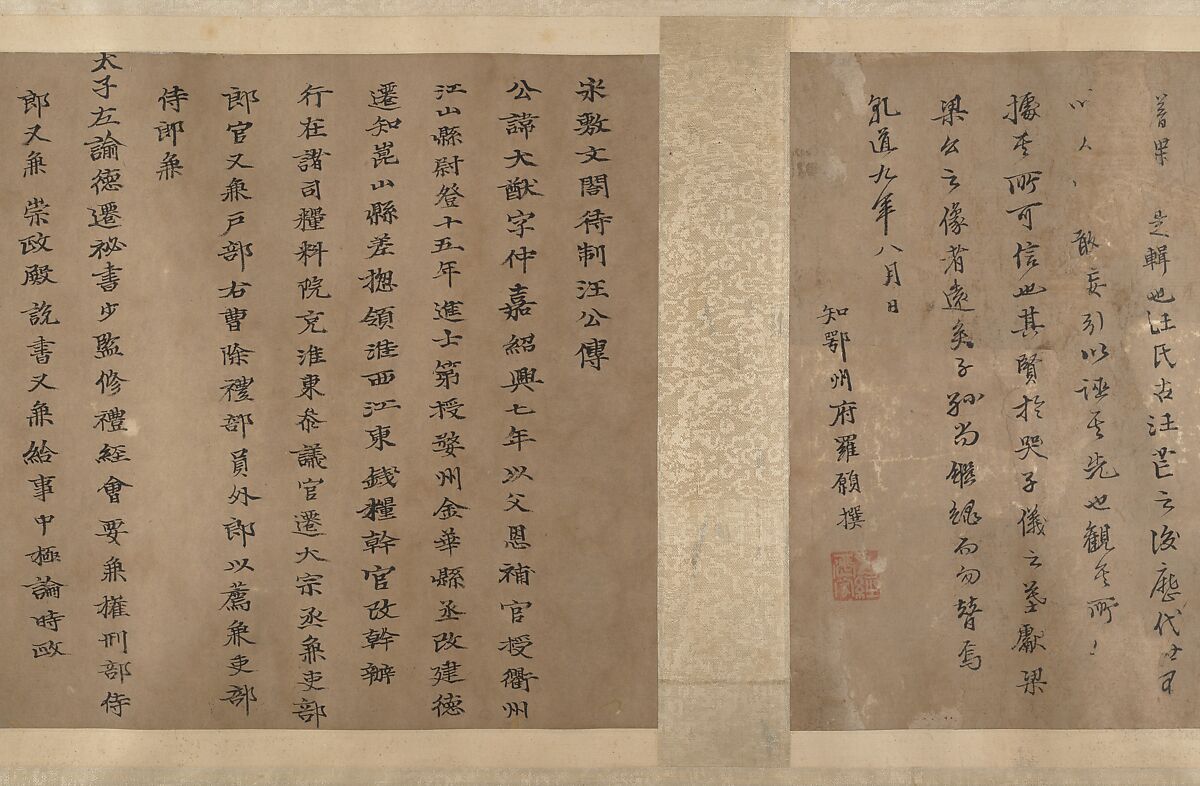 是輯也汪氏古汪芒之後歷代
敢妄引以誣其先也觀其所
據其所可信也其賢於哭子儀之墓獻梁
梁公之像者遠矣子孫尚鑑
乾道九年八月日
知鄂州府羅願撰
宋敷文閣待制汪公傳
公諱大猷字仲嘉紹興七年以父恩補官授衢州
江山縣尉登十五年進士第授婺州金華縣丞改建德
遷知崑山縣差揔領淮西江東錢糧幹官改幹辦
行在諸司糧料院充淮東叅議官遷大宗丞兼吏部
郎官又兼戶部右曹除禮部員外郎以薦兼吏部
侍郎兼
太子左諭德遷祕書少監修禮經會要兼權刑部侍
郎又兼崇政殿說書又兼給事中極論時政